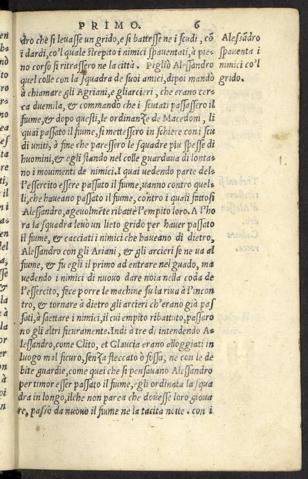 PRIMO. 6
dro che si leuasse un grido, e si battesse ne i scudi, cō
i dardi, co'l quale strepito i nimici spauentati, à pie-
no corso si ritrassero ne la città. Pigliò Alessandro
quel colle con la squadra de suoi amici, dipoi mandò
à chiamare gli Agriani, e gli arcieri, che erano cerca
duemila, & commando che i scutati passassero il
fiume, & dopo questi, le ordinanze de Macedoni, li
quai passato il fiume, si mettessero in schiere con i scu
di uniti, à fine che paressero le squadre piu spesse di
huomini, & egli stando nel colle guardaua di lonta-
no i mouimenti de nimici. I quai uedendo parte del-
l'essercito essere passato il fiume, uanno contro quel-
li, che haueano passato il fiume, contro i quai fattosi
Alessandro, ageuolmēte ribattè l'empito loro. A l'ho
ra la squadra leuò un lieto grido per hauer passato
il fiume, & cacciati i nimici che haueano di dietro,
Alessandro con gli Ariani, e gli arcieri se ne ua al
fiume, & fu egli il primo ad entrare nel guado, ma
uedendo i nimici di nuouo dare noia nella coda de
l'essercito, fece porre le machine su la riua à l'incon
tro, & tornare à dietro gli arcieri ch'erano già pas
sati, à saettare i nimici, il cui empito ribattuto, passaro
no gli altri sicuramente. Indi à tre dì intendendo A-
lessandro, come Clito, et Glaucia erano alloggiati in
luogo mal sicuro, senza steccato ò fossa, ne con le de
bite guardie, come quei che si pensauano Alessandro
per timor esser passato il fiume, egli ordinata la squa
dra in longo, ilche non parea che douesse loro gioua
re, passò da nuouo il fiume ne la tacita notte. con i
Alesādro
spauenta i
nimici co'l
grido.